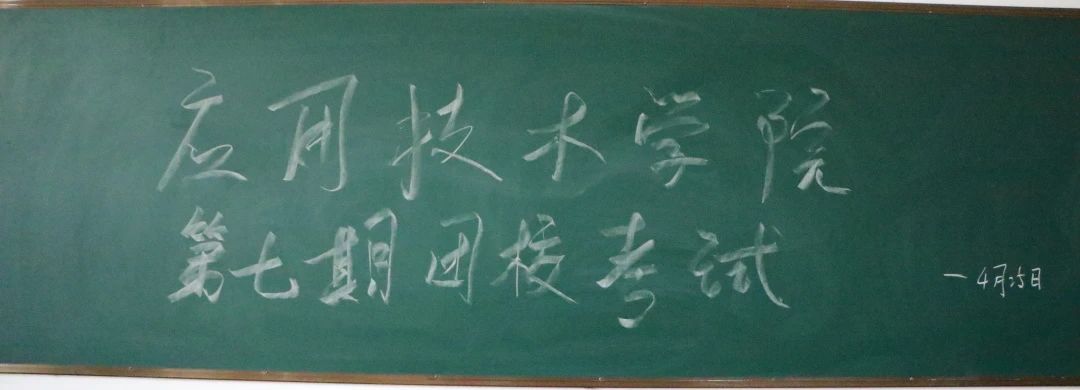 应用技术学院
第七期团校考试
一4月25日